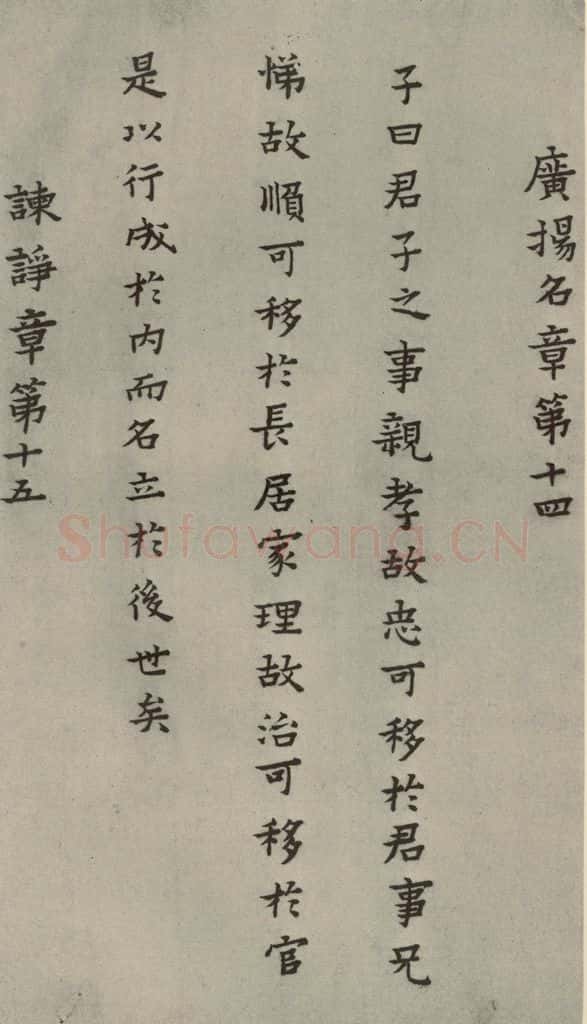 廣揚名章第十四
子曰君子之事親孝故忠可移於君事兄
悌故順可移於長居家理故治可移於官
是以行成於内而名立於後世矣
諫諍章第十五
Shufawang.CN